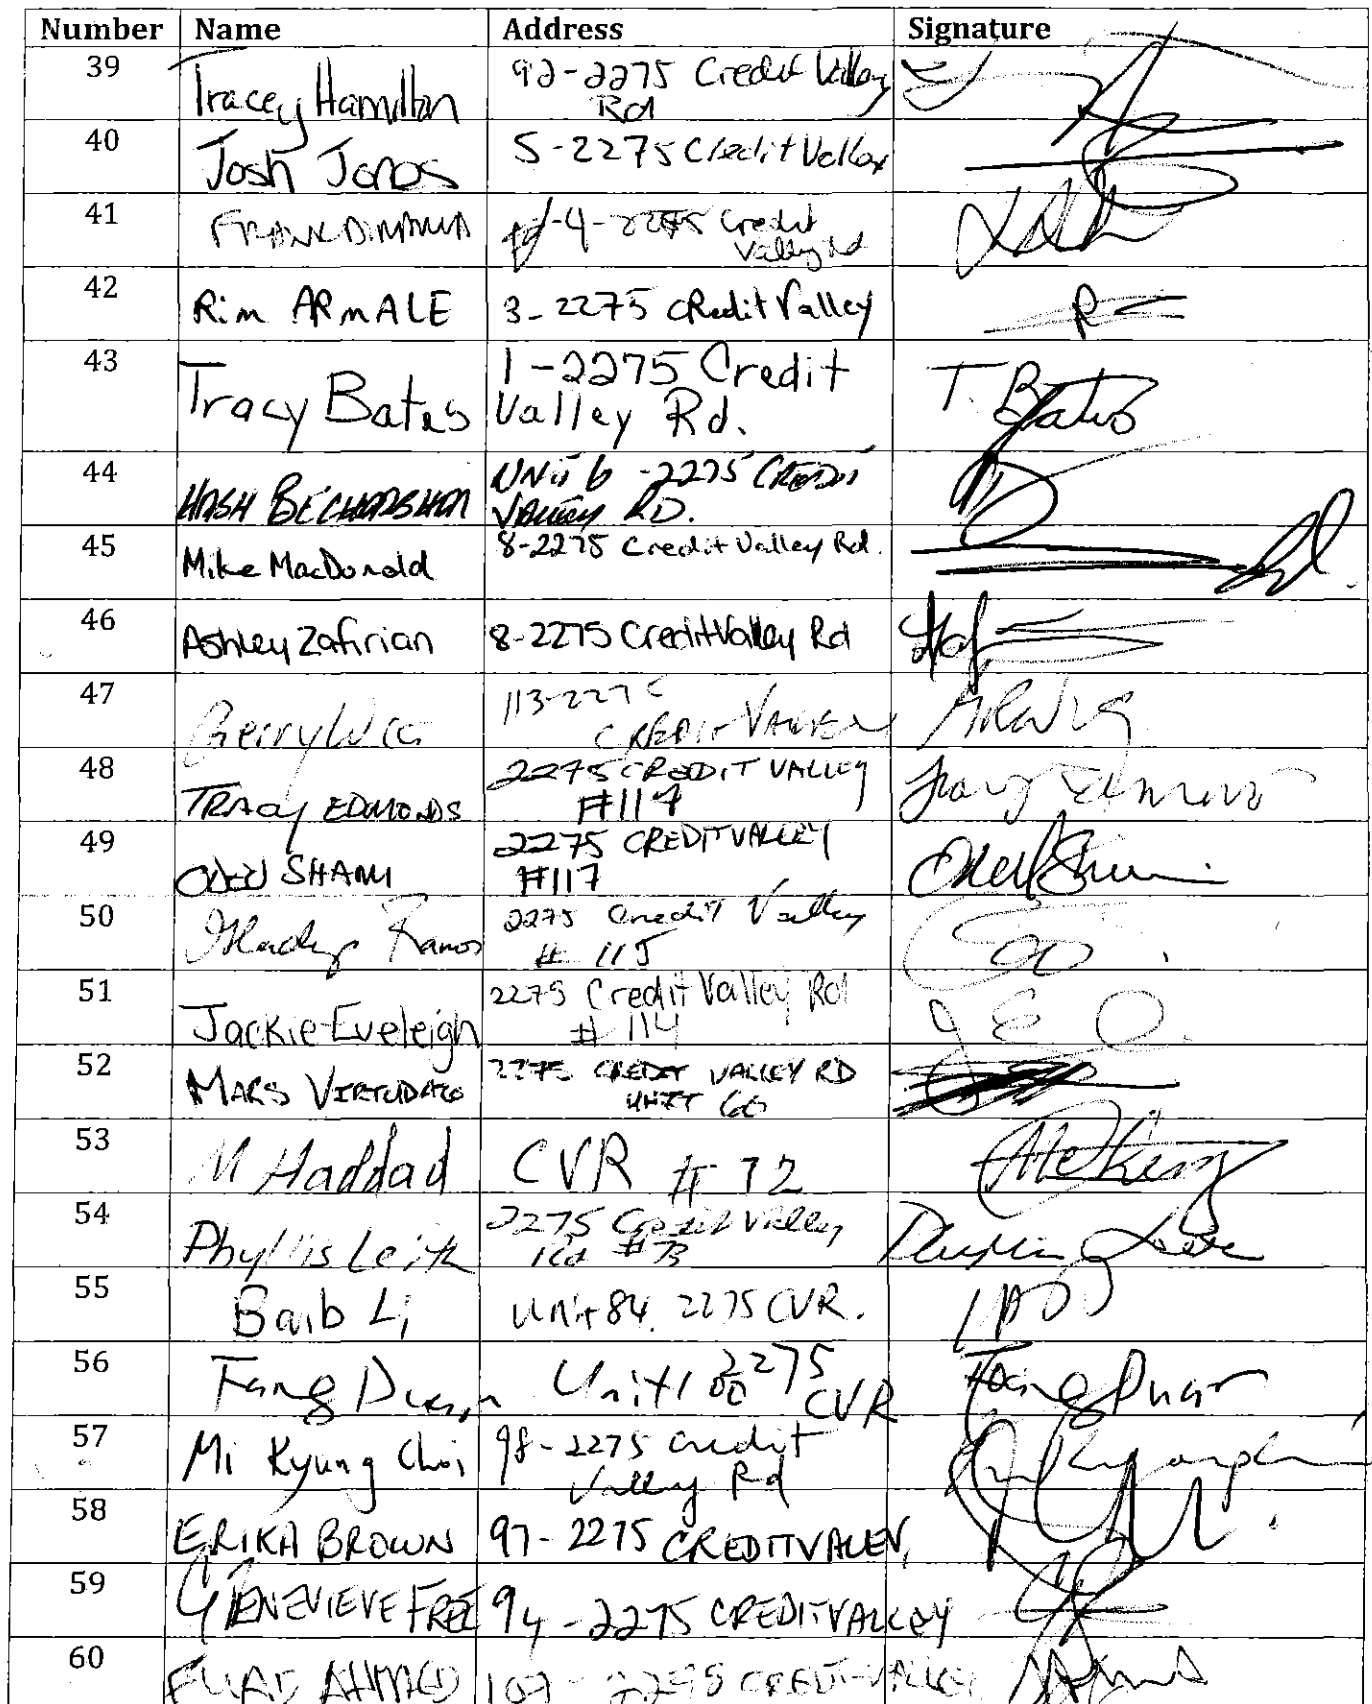 Number Name Address Signature
39 Tracey Hamilton 92-2275 Credit Valley
Rd
40 Josh Jones 5-2275 Credit Valley
41 FRANK -4-2275 Credit
Valley Rd
42 Rim ARMALE 3-2275 CRedit Valley
43 Tracy Bates 1-2275 Credit T. Bates
Valley Rd.
44 UNit 6 -2275 CREDIT
VALLEY RD.
45 Mike MacDonald 8-2275 Credit Valley Rd.
46 Ashley Zafirian 8-2275 Credit Valley Rd
47 113-2275
CREDIT VALLEY
48 TRACY EDMONDS 2275 CREDIT VALLEY Tracy Edmonds
#117
49 ODED SHAMI 2275 CREDIT VALLEY
#117
50 Gladys Ramos 2275 Credit Valley
# 115
51 Jackie Eveleigh 2275 Credit Valley Rd
# 114
52 MARS 2275 CREDIT VALLEY RD
UNIT 66
53 M Haddad CVR # 72
54 Phyllis Leith 2275 Credit Valley Phyllis Leith
Rd # 73
55 Barb Li Unit 84. 2275 CVR.
56 Fang Duan Unit 100 2275 Fang Duan
CVR
57 Mi Kyung Choi 98-2275 Credit
Valley Rd
58 ERIKA BROWN 97-2275 CREDIT VALLEY,
59 GENEVIEVE FREE 94-2275 CREDIT VALLEY
60 FUAD AHMED 107 - 2275 CREDIT VALLEY